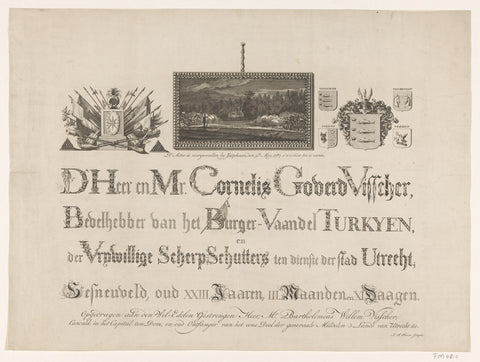 De Actie is voorgevallen by Jutphaas, den 9de May 1787 's avonds ten 11 uuren.
D'Heer en Mr. Cornelis Goverd Visscher,
Bevelhebber van het Burger-Vaandel TURKYEN,
en
der Vrywillige Scherp-Schutters ten dienste der stad Utrecht;
Gesneuveld, oud XXIII Jaaren, III Maanden en XI Daagen.
Opgedragen aan den Wel-Edelen Gestrengen Heer, Mr. Bartholomeus Willem Visscher,
Canonik in het Capittel ten Dom, en oud Ontfanger van het eene Deel der generaale Middelen 's Lands van Utrecht &c.